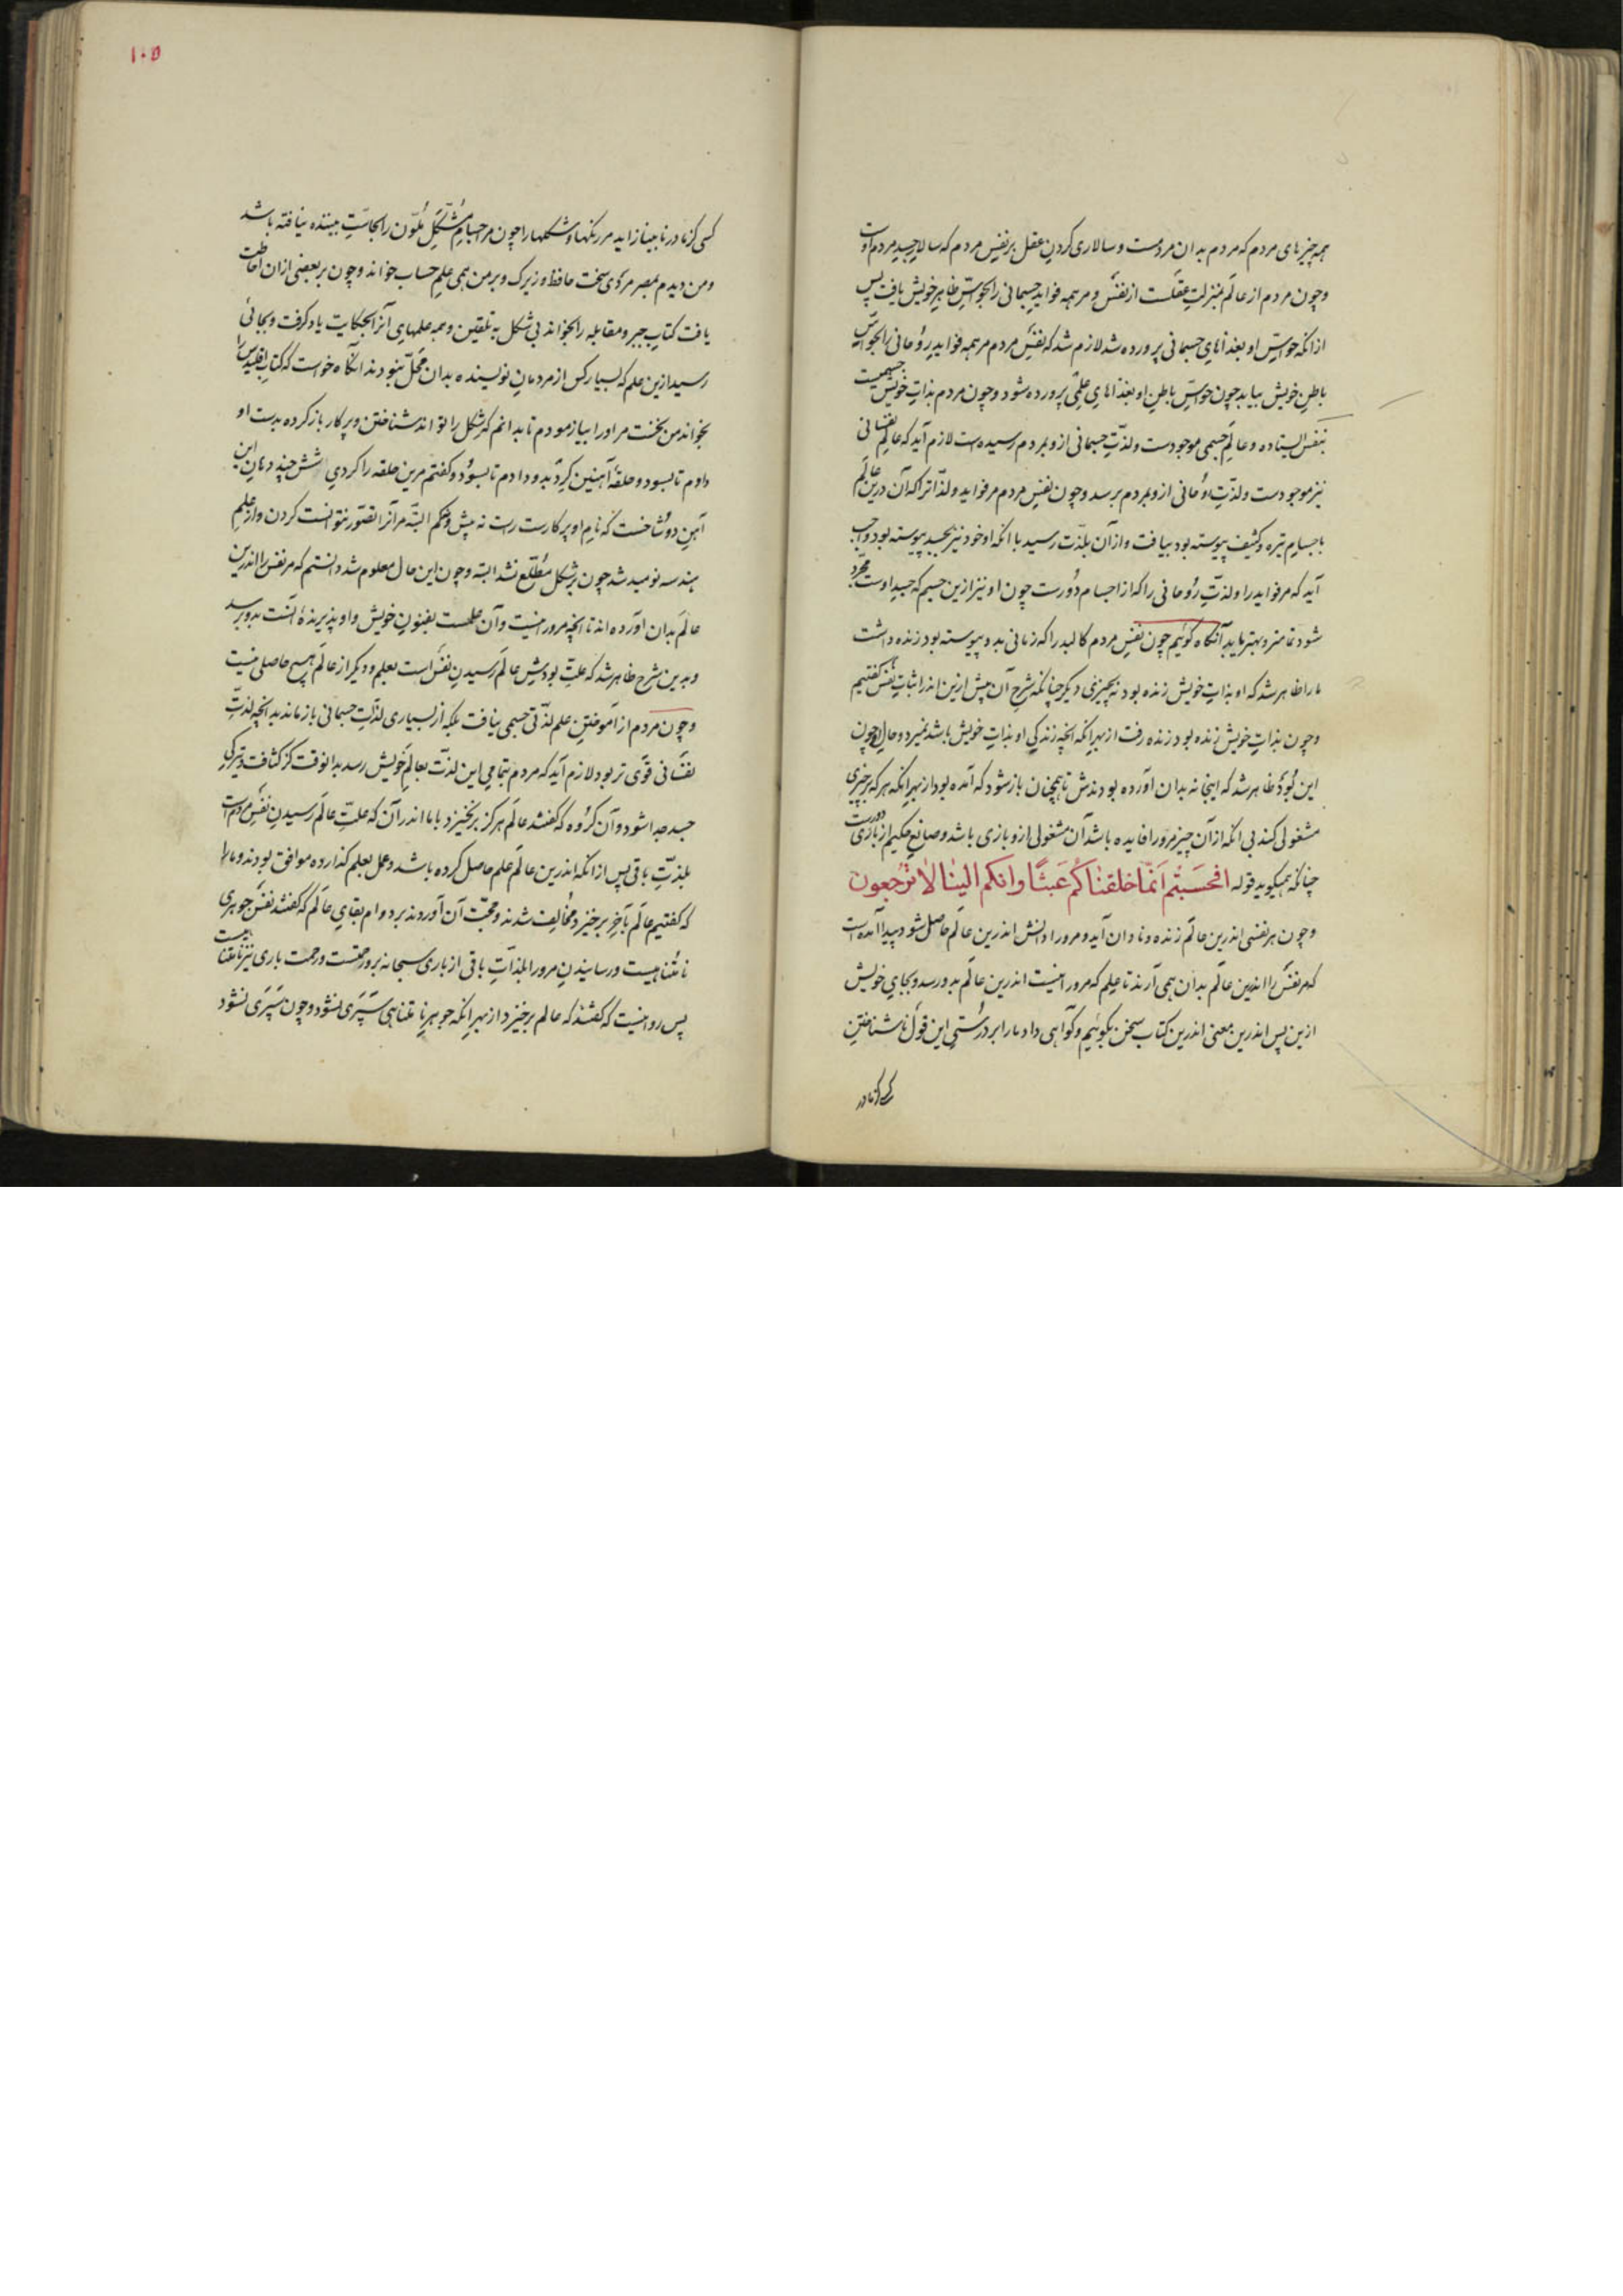 همه چیزهای مردم که مردم بدان مردمست و سالاری کردن عقل بر نفس مردم که سالار جسد مردم اوست
و چون مردم از عالم بمنزلت عقلست از نفس و مر همه فواید جسمانی را بحواس ظاهر خویش یافت پس
ازانکه حواس او بغذاهای جسمانی پرورده شد لازم شد که نفس مردم مر همه فواید روحانی را بحواس
باطن خویش بیابد چون حواس باطن او بغذاهای علمی پرورده شود و چون مردم بذات خویش جسمیست
بنفس ایستاده و عالم جسمی موجودست و لذت جسمانی ازو بمردم رسیده است لازم آید که عالم نفسانی
نیز موجودست و لذت روحانی ازو بمردم برسد و چون نفس مردم مر فواید و لذاترا که آن درین عالم
باجسام تیره و کثیف پیوسته بود بیافت و از آن بلذت رسید با انکه او خود نیز بجسد پیوسته بود واجب
آید که مر فواید را و لذت روحانی را که از اجسام دورست چون او نیز ازین جسم که جسد اوست مجرد
شود تمامتر و بهتر یابد آنگاه گوئیم چون نفس مردم کالبد را که زمانی بدو پیوسته بود زنده داشت
ما را ظاهر شد که او بذات خویش زنده بود نه بچیزی دیگر چنانکه شرح آن پیش ازین اندر اثبات نفس گفتیم
و چون بذات خویش زنده بود زنده رفت از بهر انکه انچه زندگی او بذات خویش باشد نمیرد و حال او چون
این بود ظاهر شد که اینجا نه بدان آورده بودندش تا همچنان باز شود که آمده بود از بهر انکه هر که بر چیزی
مشغولی کند بی انکه از آن چیز مرورا فایده باشد آن مشغولی ازو بازی باشد و صانع حکیم از بازی دورست
چنانکه همیگوید قوله افحسبتم انما خلقناکم عبثا وانکم الینا لا ترجعون
و چون هر نفسی اندرین عالم زنده و نادان آید و مرورا دانش اندرین عالم حاصل شود پیدا آمده است
که مر نفس را اندرین عالم بدان همی آرند تا علم که مرورا نیست اندرین عالم بدو رسد و بجای خویش
ازین پس اندرین معنی اندرین کتاب سخن بگوئیم و گواهی داد ما را بر درستی این قول ناشناختن
کسی کز مادر
۱۰۵
کسی کز مادر نابینا زاید مر رنگها و شکلها را چون مر اجسام مشکل ملون را بحاست بیننده نیافته باشد
و من دیدم بمصر مردی سخت حافظ و زیرک و بر من همی علم حساب خواند و چون بر بعضی ازان احاطت
یافت کتاب جبر و مقابله را بخواند بی شکل به تلقین و همه علمهای آنرا بحکایت یاد گرفت و بجائی
رسید ازین علم که بسیار کس از مردمان نویسنده بدان محل نبودند آنگاه خواست که کتاب اقلیدس را
بخواند من بخست مر اورا بیازمودم تا بدانم که شکل را تواند شناختن و پرکار باز کرده بدست او
دادم تا بسود و حلقهٔ آهنین گرد بدو دادم تا بسود و گفتم مرین حلقه را کردی شش چند دهان این
آهن دو شاخست که نام او پرکارست راست نه بیش و نه کم البته مر آنرا تصور نتوانست کردن و از علم
هندسه نومید شد چون بر شکل مطلع نشد البته و چون این حال معلوم شد دانستم که مر نفس را اندرین
عالم بدان آورده اند تا انچه مرورا نیست و آن علمست بفنون خویش و او پذیرندهٔ آنست بدو برسد
و بدین شرح ظاهر شد که علت بودش عالم رسیدن نفس است بعلم و دیگر از عالم هیچ حاصلی نیست
و چون مردم از آموختن علم لذتی جسمی نیافت بلکه از بسیاری لذات جسمانی باز ماند بدانچه لذت
نفسانی قوی تر بود لازم آید که مردم بتمامی این لذت بعالم خویش رسد بدانوقت کز کثافت و تیرگی
جسد جدا شود و آن گروه که گفتند عالم هرگز برنخیزد با ما اندر آن که علت عالم رسیدن نفس مردم است
بلذت باقی پس ازانکه اندرین عالم علم حاصل کرده باشد و عمل بعلم گذارده موافق بودند و ما را
که گفتیم عالم بآخر برخیزد مخالف شدند و حجت آن آوردند بر دوام بقای عالم که گفتند نفس جوهری
نامتناهیست و رسانیدن مرورا بلذات باقی از باری سبحانه برو رحمتست و رحمت باری نیز نامتناهیست
پس روا نیست که گفتند که عالم برخیزد از بهر انکه جوهر نامتناهی سپری نشود و چون سپری نشود